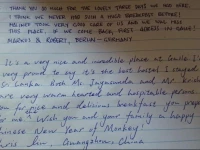 THANK YOU SO MUCH FOR THE LOVELY THREE DAYS WE HAD HERE.
I THINK WE NEVER HAD SUCH A NICE BREAKFAST BEFORE!
THEY TOOK VERY GOOD CARE OF US AND WE WILL MISS
THIS PLACE. IF WE COME BACK, FIRST ALWAYS
& ROBERT, BERLIN - GERMANY
It's a very nice and incredible place at Lanka. I
very proud to say it's the best hostel I stayed
Sri Lanka. Both Mr. and Mr.
are very warm hearted and hospitable persons
for nice and delicious breakfast you prepare
for me! Wish you and your family a happy
Chinese New Year of Monkey!
Guangzhou, China